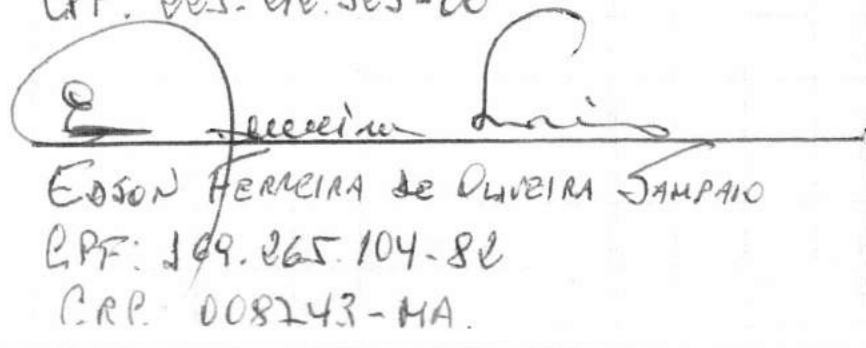 CPF:
Ferreira
EDSON FERREIRA de OLIVEIRA SAMPAIO
CPF: 169.265.104-82
C.R.P. 008243-MA.